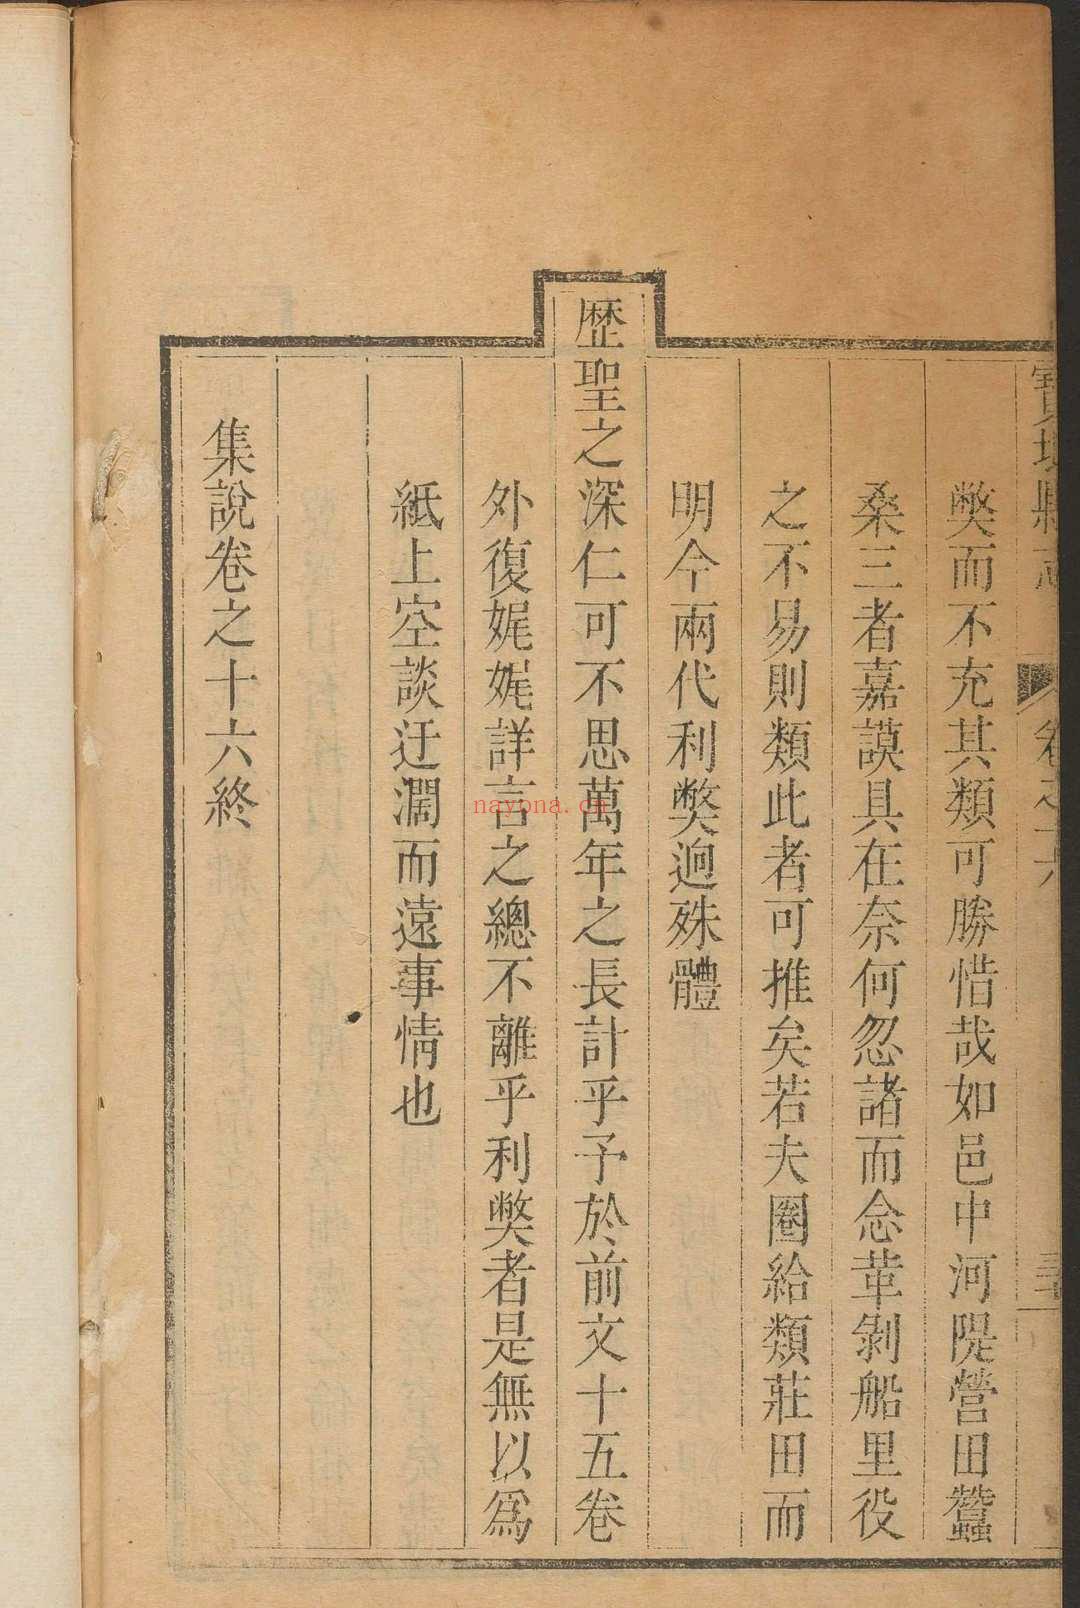 寶坻縣志 卷之十六
弊而不充其類可勝惜哉如邑中河隄營田蠶
桑三者嘉謨具在奈何忽諸而念革剝船里役
之不易則類此者可推矣若夫圈給類莊田而
明今兩代利弊逈殊體
歷聖之深仁可不思萬年之長計乎予於前文十五卷
外復娓娓詳言之總不離乎利弊者是無以爲
紙上空談迂濶而遠事情也
集說卷之十六終
nayona.cn